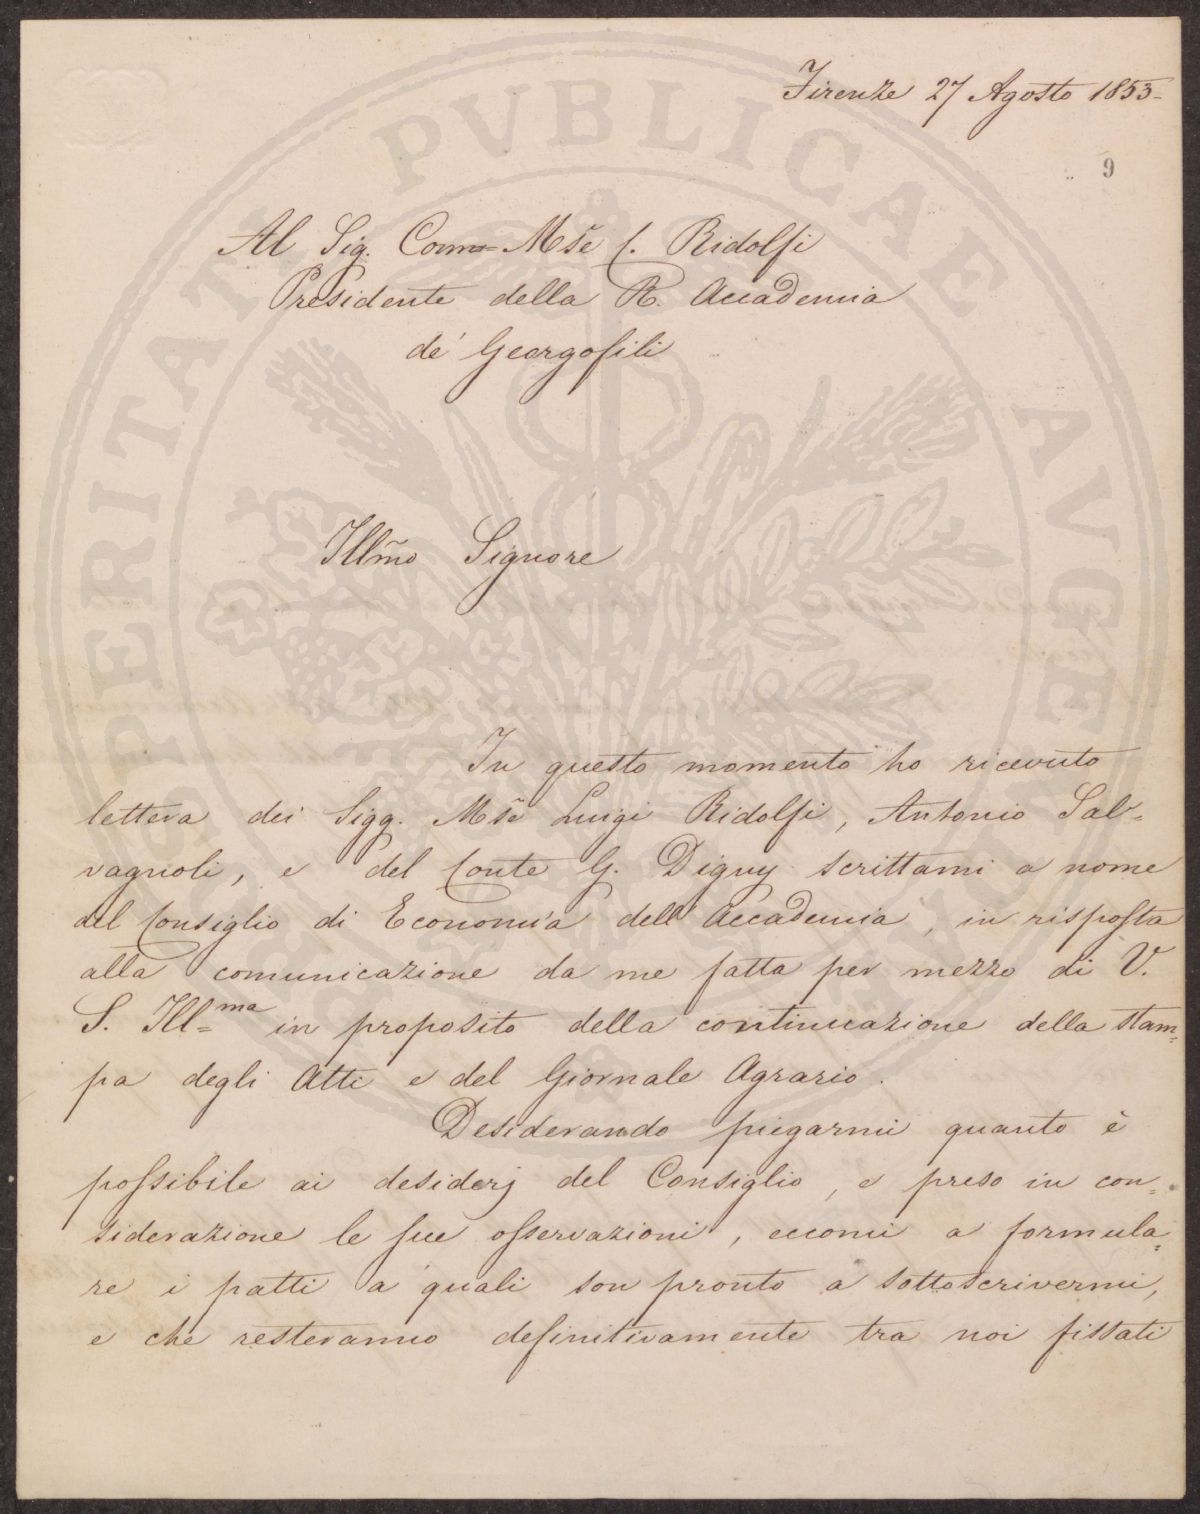 Firenze 27 Agosto 1853-
9
Al Sig. Comm= Mse C. Ridolfi
Presidente della R. Accademia
de' Georgofili
Illmo Signore
In questo momento ho ricevuto
lettera dei Sigg. Mse Luigi Ridolfi, Antonio Sal=
vagnoli, e del Conte G. Digny scrittami a nome
del Consiglio di Economia dell'Accademia, in risposta
alla comunicazione da me fatta per mezzo di V.
S. Ill=ma in proposito della continuazione della stam=
pa degli Atti e del Giornale Agrario.
Desiderando piegarmi quanto è
possibile ai desiderj del Consiglio, e preso in con=
siderazione le sue osservazioni, eccomi a formula=
re i patti a quali son pronto a sottoscrivermi,
e che resteranno definitivamente tra noi fissati
PROSPERITATI PVBLICAE AVGENDAE